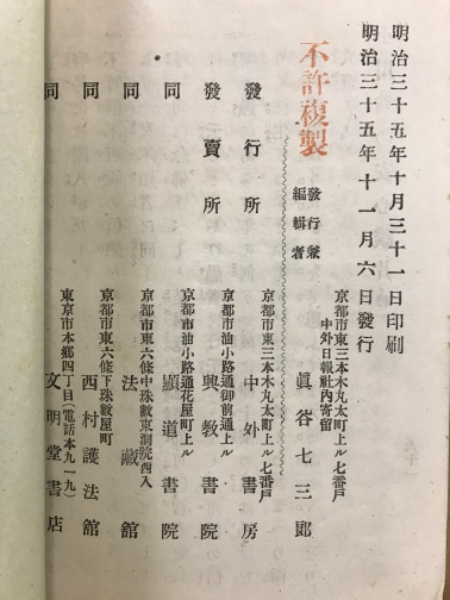 明治三十五年十月三十一日印刷
明治三十五年十一月六日發行
不許複製
京都市東三本木丸太町上ル七番戸
中外日報社内寄留
發行兼
編輯者
眞谷七三郎
京都市東三本木丸太町上ル七番戸
發行所
中外書房
京都市油小路通御前通上ル
發賣所
興教書院
京都市油小路通花屋町上ル
同
顯道書院
京都市東六條中珠數東洞院西入
同
法藏館
京都市東六條下珠數屋町
同
西村護法館
東京市本郷四丁目(電話本九一九)
同
文明堂書店